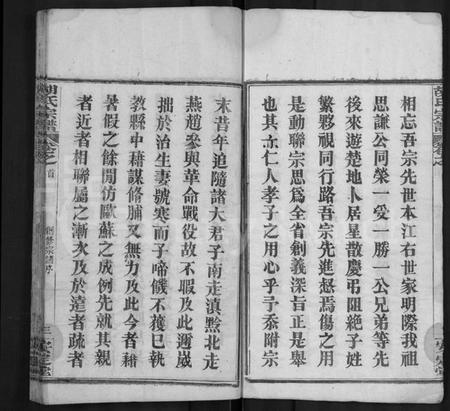 相忘吾宗先世本江右世家明際我祖
思謙公同榮一愛一勝一公兄弟等先
後來遊楚地卜居星散慶弔阻絕子姓
繁夥視同行路吾宗先進惄焉傷之用
是動聯宗思爲全省創義深旨正是舉
也其亦仁人孝子之用心乎予忝附宗
末昔年追隨諸大君子南走滇黔北走
燕趙參與革命戰役故不暇及此邇歲
拙於治生妻號寒而子啼饑不獲已執
教縣中藉謀脩脯又無力及此今者藉
暑假之餘閒仿歐蘇之成例先就其親
者近者相聯屬之漸次及於遠者疎者
胡氏宗譜
卷之首
創修宗譜序
三
安定堂